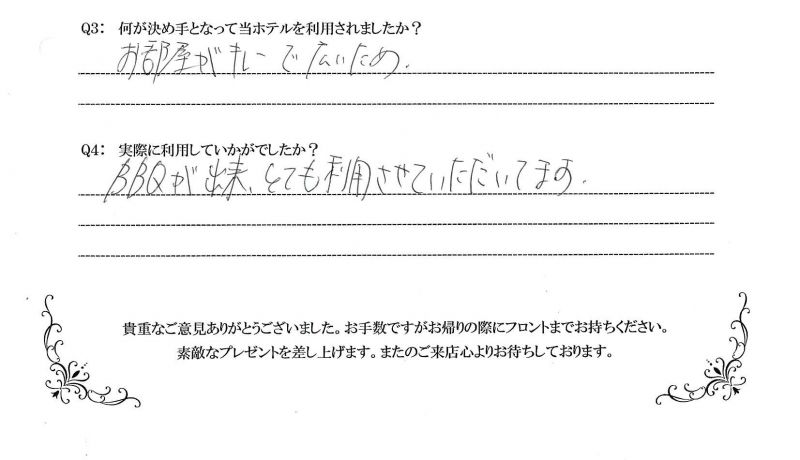 Q3: 何が決め手となって当ホテルを利用されましたか?
お部屋がキレーで広いため.
Q4: 実際に利用していかがでしたか?
BBQが出来、とても利用させていただいてます.
貴重なご意見ありがとうございました。お手数ですがお帰りの際にフロントまでお持ちください。
素敵なプレゼントを差し上げます。またのご来店心よりお待ちしております。